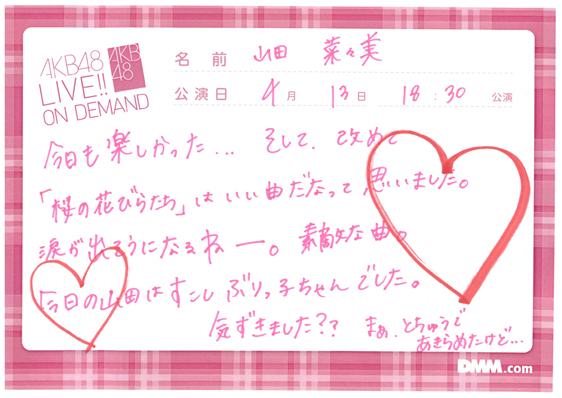 AKB48
LIVE!!
ON DEMAND
AKB
48
名前 山田 菜々美
公演日 4月 13日 18:30 公演
今日も楽しかった... そして、改めて
「桜の花びらたち」はいい曲だなって思いました。
涙が出そうになるねー。素敵な曲。
今日の山田はすこしぶりっ子ちゃんでした。
気ずきました?? まぁ、とちゅうで
あきらめたけど...
DMM.com